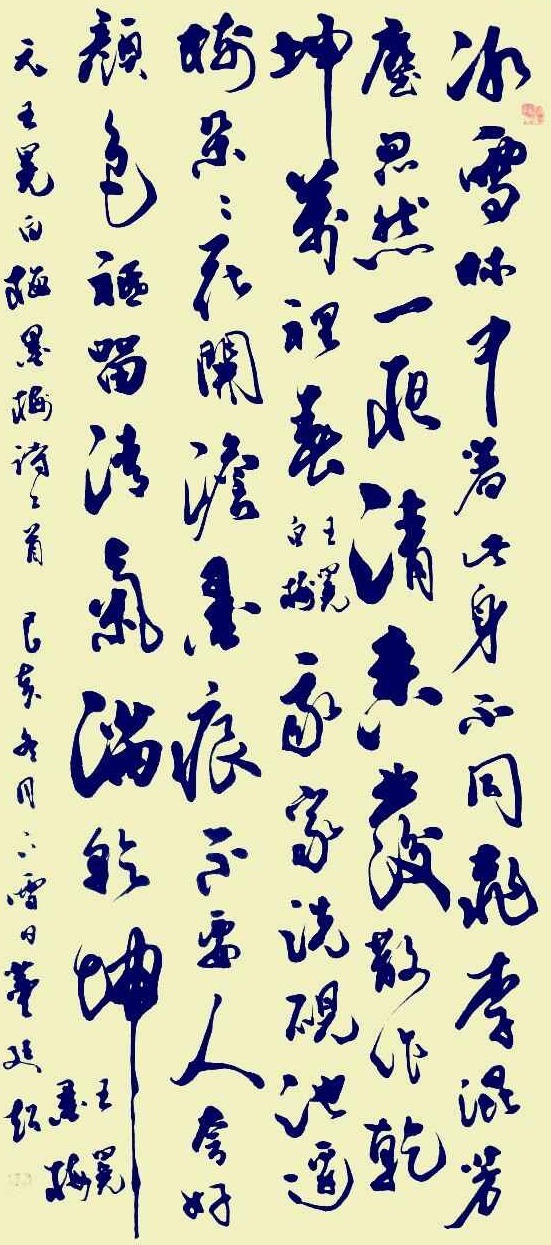 冰雪林中著此身不同桃李混芳
塵忽然一夜清香發散作乾
坤萬裡春
王冕
白梅
我家洗硯池邊
樹朵々花開澹墨痕不要人夸好
顏色祗留清氣滿乾坤
王冕
墨梅
元王冕白梅墨梅詩二首 己亥冬月下雪日